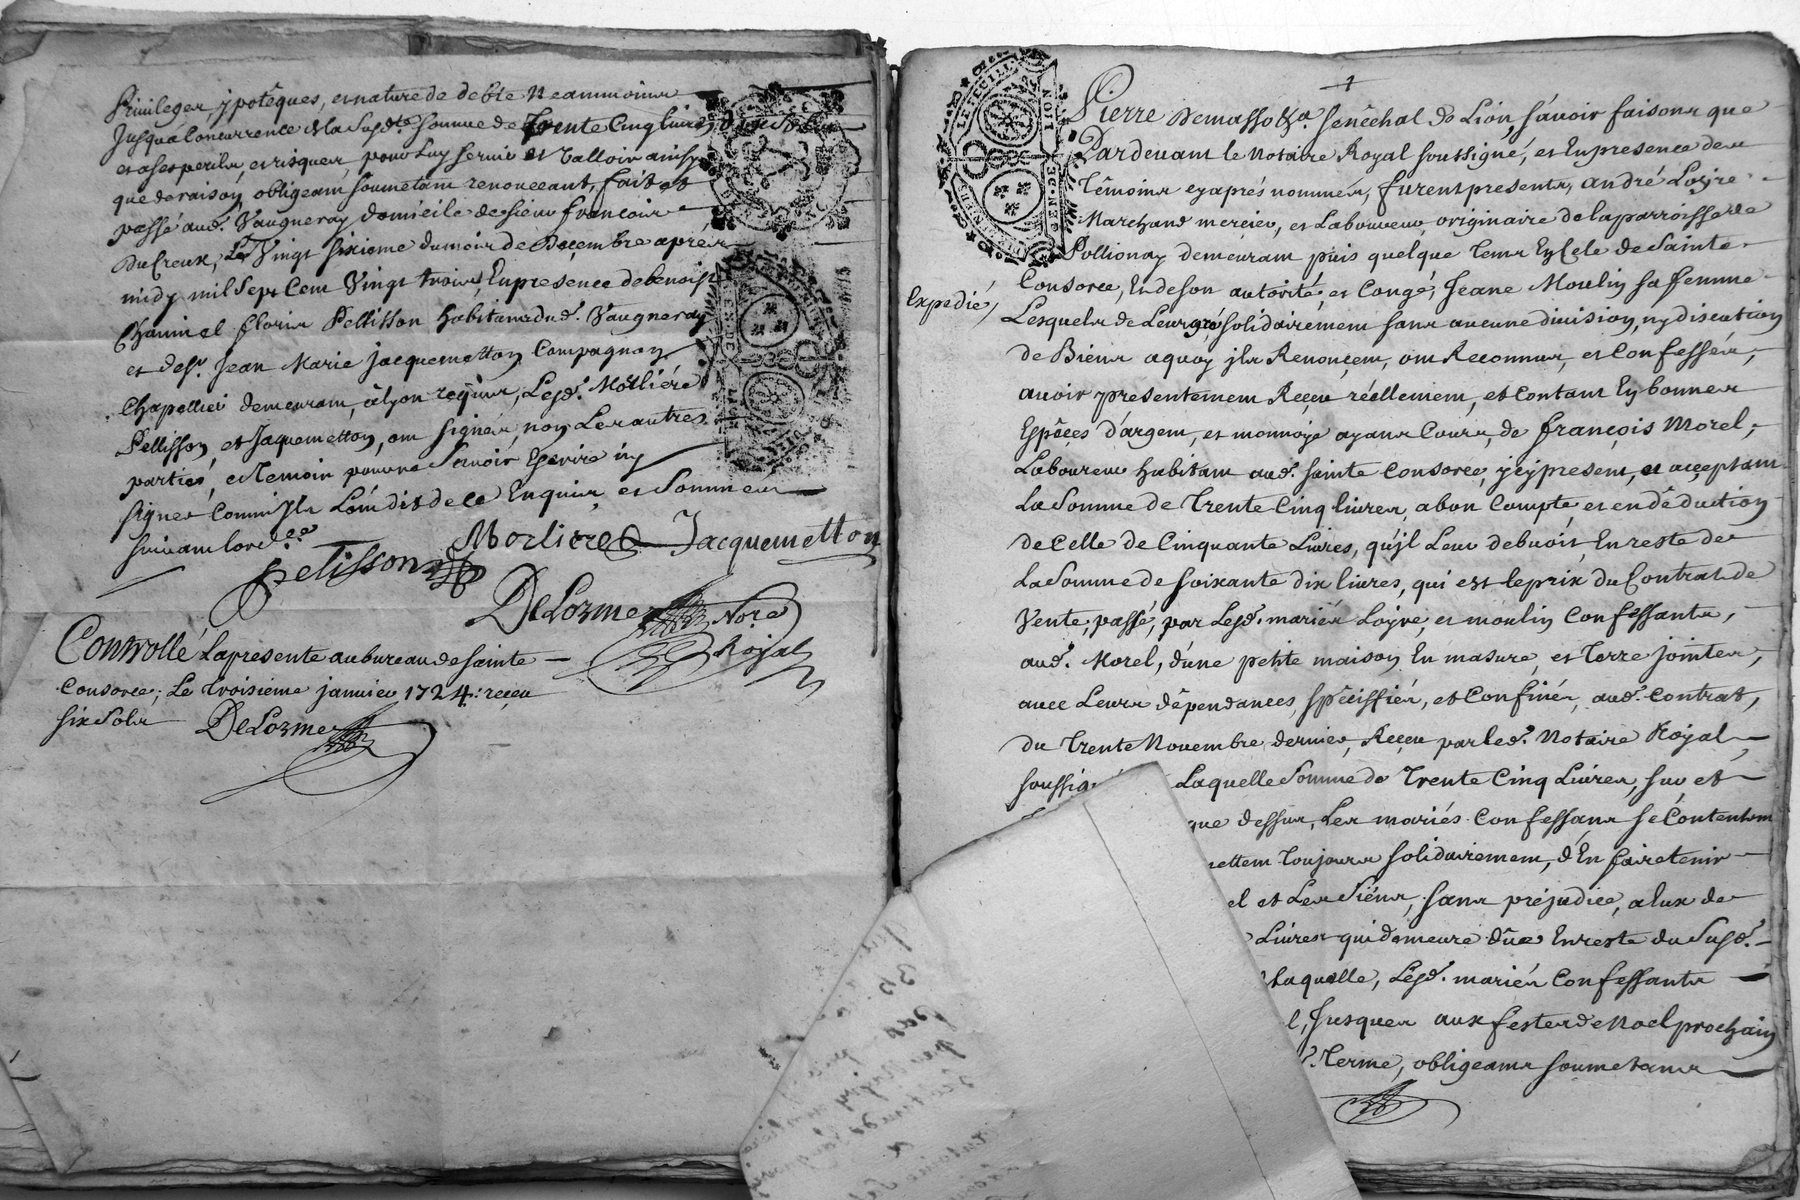 Privileges, ypotêques, et nature de debte Neammoins
Jusqua Concurrence de la Susd.te somme de Trente Cinq livres
et a ses perils, et risques, pour luy servir et valloir ainsy
que de raison, obligeant soumetant renonceant, fait et
passé aud.t Vaugneray domicile de sieur françois
Du Creux, Le Vingt sixieme du mois de Decembre aprés
midy mil Sept Cent Vingt trois, En presence de benoist
Floris Pellisson habitans dud.t Vaugneray
et de s.r Jean Marie Jacquemetton Compagnon
Chapellier demeurant, à lyon requis, Lesd.t Morliére
Pellisson, et Jaquemetton, ont signés, non Les autres
parties, et Temoin pour ne Scavoir Escrire ny
signer Comm'Ils L'ont dit de ce Enquis, et Sommés
suivant l'ord.ce
Morliere Jacquemetton
pelisson
DeLorme No.re
Royal
Controllé La presente au bureau de Sainte
Consorce, Le Troisieme janvier 1724 : reçeu
six sols DeLorme
LION
GEN·DE
Pierre Demasso &.a Senêchal de Lion, sçavoir faisons que
Pardevant le Notaire Royal soussigné, et En presence des
Témoins cy aprés nommés, furent presents, andré Loyre
Marchand mercier, et Laboureur, originaire de la parroisse de
Pollionay demeurant puis quelque tems En Cele de Sainte
Consorce, Et de son autorité, et Congé, Jeane Moulin sa femme
Expedié
Lesquels de Leur gré solidairement sans aucune division, ny discution
de Biens a quoy ils Renonçent, ont Reconnus, et Confessés,
avoir presentement Reçeu réellement, et Contant En bonnes
Espêces d'argent, et monnoye ayans Cours, de françois Morel,
Laboureur habitant aud.t Sainte Consorce, jcy present, et acçeptant
La Somme de Trente Cinq livres, a bon Compte, et en dêduction
de Celle de Cinquante Livres, qu'jl Leur debvoit En reste de
La Somme de soixante dix livres, qui est le prix du Contrat de
Vente, passé, par Lesd.t mariés Loyre, et moulin Confessants,
aud.t Morel, d'une petite maison En masure, et Terre jointes,
avec Leurs dêpendances, spêcifiés, et Confinés, aud.t Contrat,
du Trente Novembre dernier, Reçeu par led.t Notaire Royal
soussig Laquelle Somme de Trente Cinq Livres, sur, et
que dessus, Les mariés Confessans se Contentent
ettent Toujours solidairement, d'En faire tenir
el et Les Siens, sans préjudice, a lux de
Livres qui demeure dûe En reste du Susd.t
Laquelle, Lesd.t mariés Confessants
l, Jusques aux festes de Noel prochain
Terme, obligeants soumetans